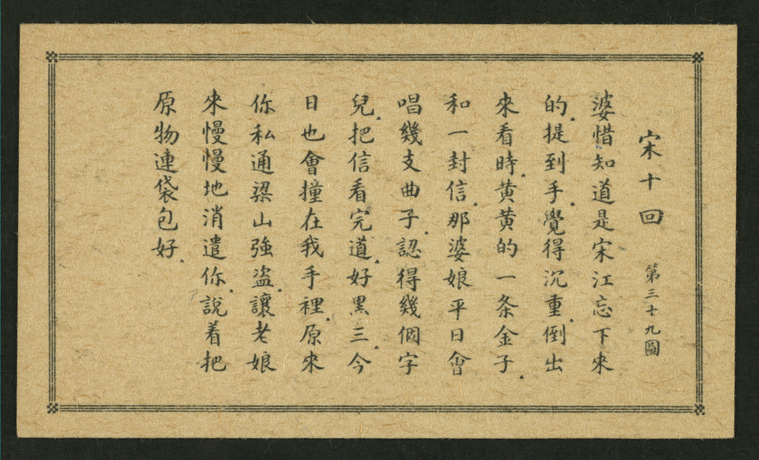 宋十回 第三十九圖
婆惜知道是宋江忘下來
的.提到手.覺得沉重.倒出
來看時.黄黄的一条金子.
和一封信.那婆娘平日會
唱幾支曲子.認得幾個字
兒.把信看完.道.好黑三.今
日也會撞在我手裡.原來
你私通梁山強盗.讓老娘
來慢慢地消遣你.說着把
原物連袋包好.